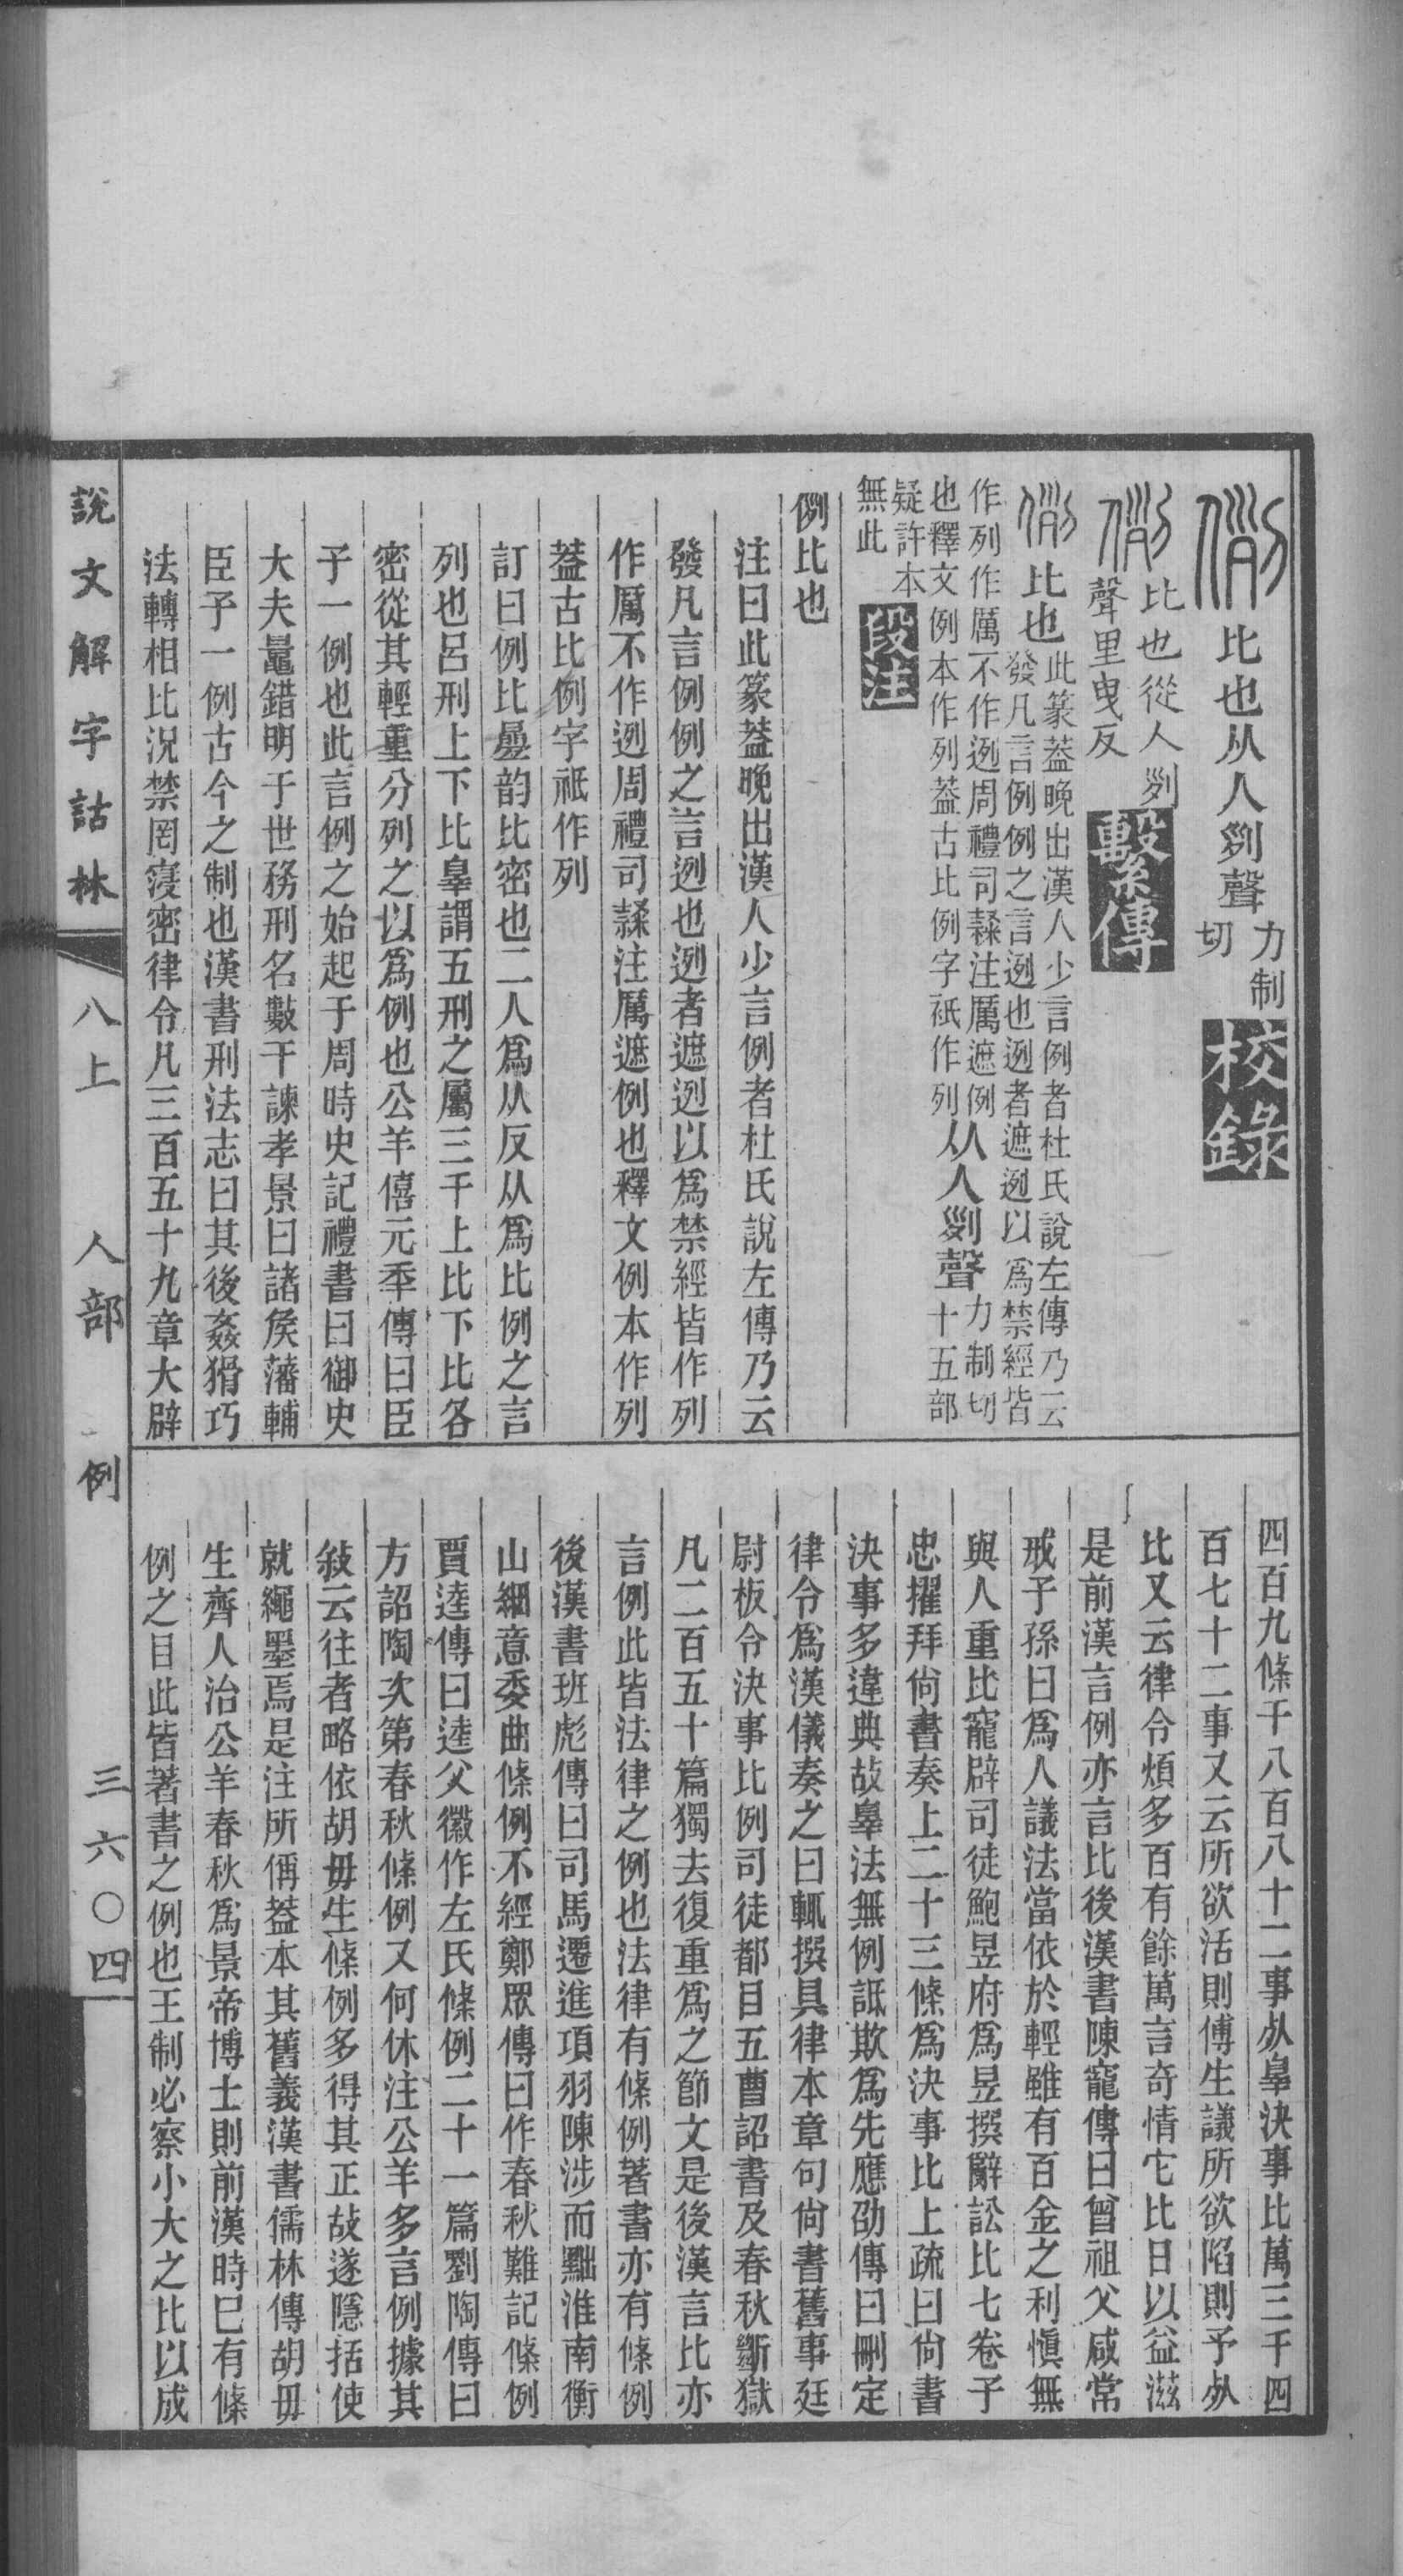 比也从人𠛱聲力制切校錄
比也從人𠛱
聲里曳反繫傳
比也此篆葢晚出漢人少言例者杜氏說左傳乃云
發凡言例例之言迾也迾者遮迾以爲禁經皆
作列作厲不作迾周禮司隸注厲遮例
也釋文例本作列葢古比例字祇作列从人𠛱聲力制切十五部
疑許本
無此段注
例比也
注曰此篆葢晚出漢人少言例者杜氏說左傳乃云
發凡言例例之言迾也迾者遮迾以爲禁經皆作列
作厲不作迾周禮司隸注厲遮例也釋文例本作列
葢古比例字祇作列
訂曰例比曡韵比密也二人爲从反从爲比例之言
列也呂刑上下比辠謂五刑之屬三千上比下比各
密從其輕重分列之以爲例也公羊僖元秊傳曰臣
子一例也此言例之始起于周時史記禮書曰御史
大夫鼂錯明于世務刑名數干諫孝景曰諸矦藩輔
臣子一例古今之制也漢書刑法志曰其後姦猾巧
法轉相比況禁罔寖密律令凡三百五十九章大辟
四百九條千八百八十二事𣦸辠決事比萬三千四
百七十二事又云所欲活則傅生議所欲陷則予𣦸
比又云律令煩多百有餘萬言奇情它比日以益滋
是前漢言例亦言比後漢書陳寵傳曰曾祖父咸常
戒子孫曰爲人議法當依於輕雖有百金之利愼無
與人重比寵辟司徒鮑昱府爲昱撰辭訟比七卷子
忠擢拜尙書奏上二十三條爲決事比上疏曰尙書
決事多違典故辠法無例詆欺爲先應劭傳曰刪定
律令爲漢儀奏之曰輒撰具律本章句尙書舊事廷
尉板令決事比例司徒都目五曹詔書及春秋斷獄
凡二百五十篇獨去復重爲之節文是後漢言比亦
言例此皆法律之例也法律有條例著書亦有條例
後漢書班彪傳曰司馬遷進項羽陳涉而黜淮南衡
山細意委曲條例不經鄭眾傳曰作春秋難記條例
賈逵傳曰逵父徽作左氏條例二十一篇劉陶傳曰
方詔陶次第春秋條例又何休注公羊多言例據其
敍云往者略依胡毋生條例多得其正故遂隱括使
就繩墨焉是注所偁葢本其舊義漢書儒林傳胡毋
生齊人治公羊春秋爲景帝博士則前漢時巳有條
例之目此皆著書之例也王制必察小大之比以成
說文解字詁林 八上 人部 例 三六〇四